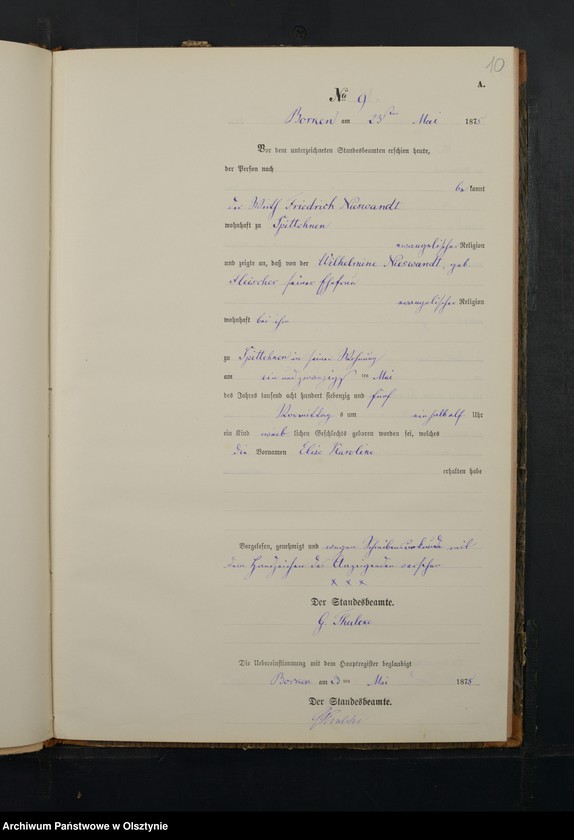 10
A.
No 9
Bornen am 23ten Mai 1875
Vor dem unterzeichneten Standesbeamten erschien heute,
der Person nach
be kannt
der Friedrich Nieswandt
wohnhaft zu
evangelischer Religion
und zeigte an, daß von der Wilhelmine Nieswandt, geb.
Fleischer, seiner Ehefrau
evangelischer Religion
wohnhaft bei ihm
zu in seiner Wohnung
am ein und zwanzigsten Mai
des Jahres tausend acht hundert siebenzig und fünf
Vormittags um Uhr
ein Kind weib lichen Geschlechts geboren worden sei, welches
die Vornamen Elise Karoline
erhalten habe
Vorgelesen, genehmigt und wegen mit
dem Handzeichen des Anzeigenden versehen
x x x
Der Standesbeamte.
G.
Die Uebereinstimmung mit dem Hauptregister beglaubigt
Bornen am 23ten Mai 1875
Der Standesbeamte.
Archiwum Państwowe w Olsztynie